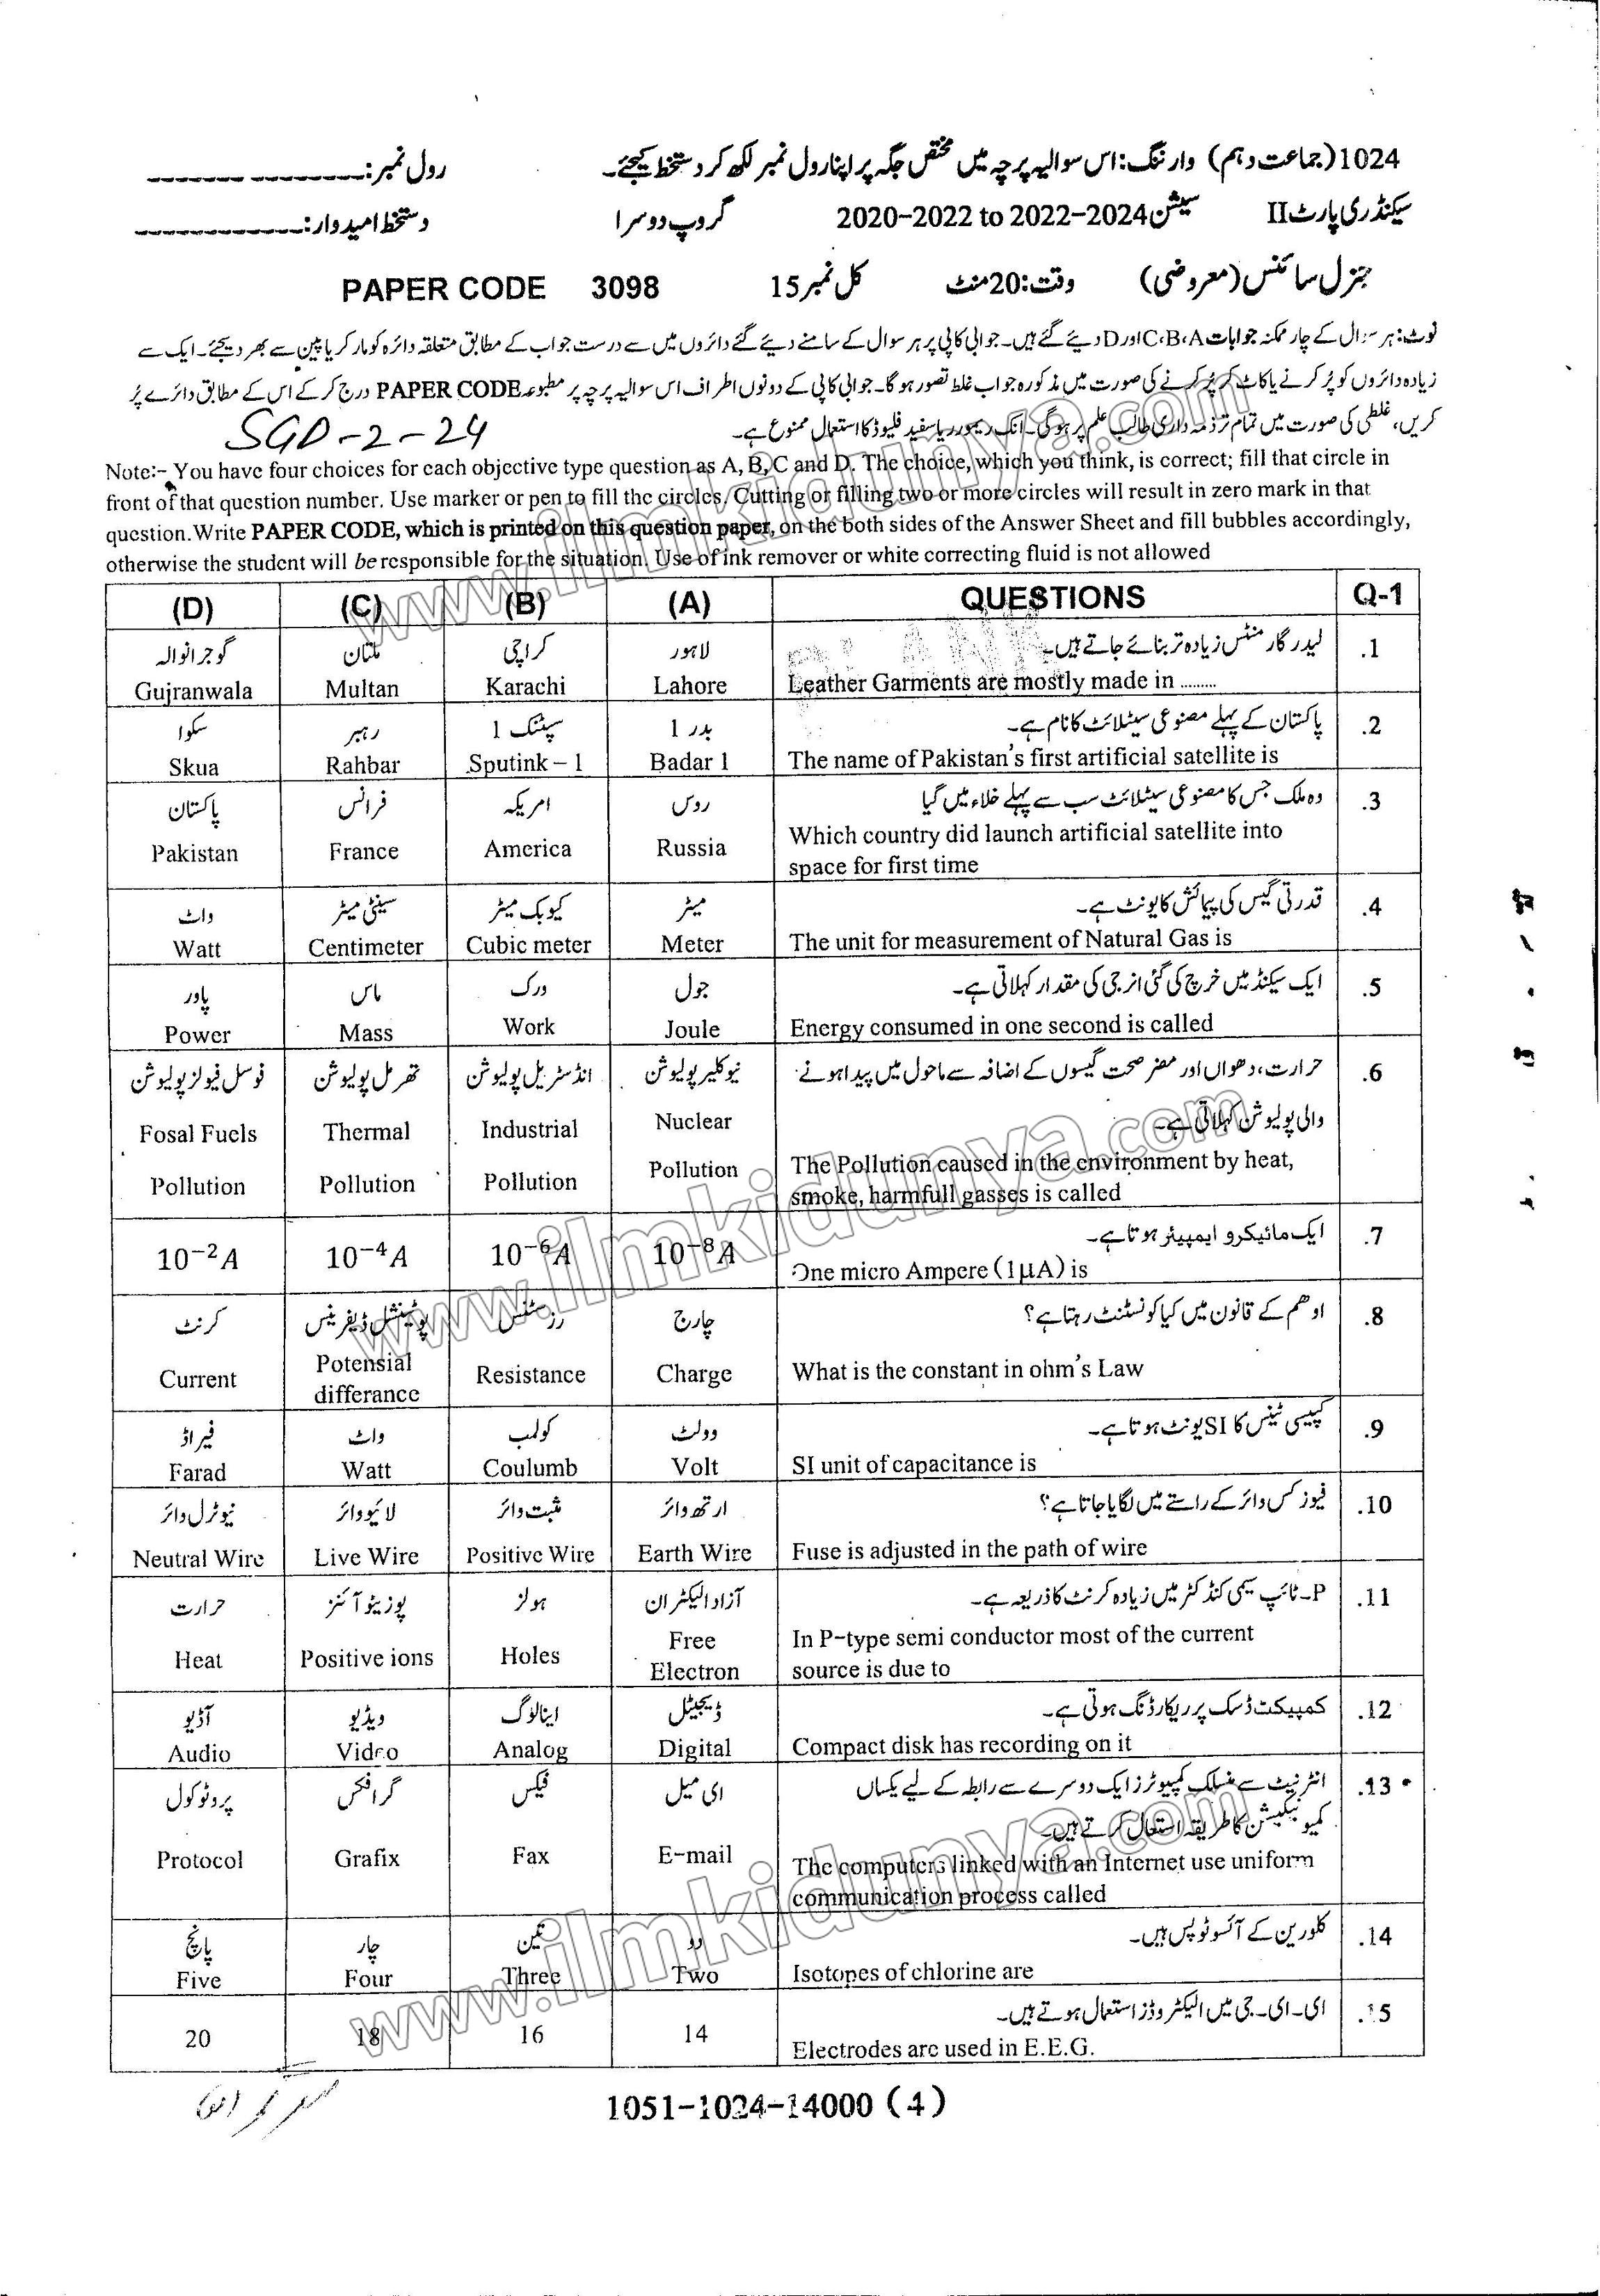 1024 (جماعت دہم) وارننگ: اس سوالیہ پرچہ میں مختص جگہ پر اپنا رول نمبر لکھ کر دستخط کیجئے۔ رول نمبر: ــــــــــــــ
سیکنڈری پارٹ II سیشن 2020-2022 to 2022-2024 گروپ دوسرا دستخط امیدوار: ــــــــــــــ
جنرل سائنس (معروضی) وقت: 20 منٹ کل نمبر 15 PAPER CODE 3098
نوٹ: ہر سوال کے چار ممکنہ جوابات A،B،C اور D دیئے گئے ہیں۔ جوابی کاپی پر ہر سوال کے سامنے دیئے گئے دائروں میں سے درست جواب کے مطابق متعلقہ دائرہ کو مارکر یا پین سے بھر دیجئے۔ ایک سے
زیادہ دائروں کو پُر کرنے یا کاٹ کر پُر کرنے کی صورت میں مذکورہ جواب غلط تصور ہوگا۔ جوابی کاپی کے دونوں اطراف اس سوالیہ پرچہ پر مطبوعہ PAPER CODE درج کر کے اس کے مطابق دائرے پُر
کریں، غلطی کی صورت میں تمام تر ذمہ داری طالب علم پر ہوگی۔ انک ریموور یا سفید فلیوڈ کا استعمال ممنوع ہے۔
SGD-2-24
Note:- You have four choices for each objective type question as A, B, C and D. The choice, which you think, is correct; fill that circle in
front of that question number. Use marker or pen to fill the circles. Cutting or filling two or more circles will result in zero mark in that
question. Write PAPER CODE, which is printed on this question paper, on the both sides of the Answer Sheet and fill bubbles accordingly,
otherwise the student will be responsible for the situation. Use of ink remover or white correcting fluid is not allowed
(D) (C) (B) (A) QUESTIONS Q-1
گوجرانوالہ ملتان کراچی لاہور لیدر گارمنٹس زیادہ تر بنائے جاتے ہیں۔ .1
Gujranwala Multan Karachi Lahore Leather Garments are mostly made in .........
سکوا رہبر سپٹنک 1 بدر 1 پاکستان کے پہلے مصنوعی سیٹلائٹ کا نام ہے۔ .2
Skua Rahbar Sputink – 1 Badar 1 The name of Pakistan's first artificial satellite is
پاکستان فرانس امریکہ روس وہ ملک جس کا مصنوعی سیٹلائٹ سب سے پہلے خلاء میں گیا .3
Pakistan France America Russia Which country did launch artificial satellite into
space for first time
واٹ سینٹی میٹر کیوبک میٹر میٹر قدرتی گیس کی پیمائش کا یونٹ ہے۔ .4
Watt Centimeter Cubic meter Meter The unit for measurement of Natural Gas is
پاور ماس ورک جول ایک سیکنڈ میں خرچ کی گئی انرجی کی مقدار کہلاتی ہے۔ .5
Power Mass Work Joule Energy consumed in one second is called
فوسل فیولز پولیوشن تھرمل پولیوشن انڈسٹریل پولیوشن نیوکلیر پولیوشن حرارت، دھواں اور مضر صحت گیسوں کے اضافہ سے ماحول میں پیدا ہونے .6
والی پولیوشن کہلاتی ہے۔
Fosal Fuels Thermal Industrial Nuclear
Pollution Pollution Pollution Pollution The Pollution caused in the environment by heat,
smoke, harmfull gasses is called
ایک مائیکرو ایمپیئر ہوتا ہے۔ .7
10⁻²A 10⁻⁴A 10⁻⁶A 10⁻⁸A One micro Ampere (1µA) is
کرنٹ پوٹینشل ڈیفرینس رزسٹنس چارج اوھم کے قانون میں کیا کونسٹنٹ رہتا ہے؟ .8
Current Potensial differance Resistance Charge What is the constant in ohm's Law
فیراڈ واٹ کولمب وولٹ کپیسی ٹینس کا SI یونٹ ہوتا ہے۔ .9
Farad Watt Coulumb Volt SI unit of capacitance is
نیوٹرل وائر لائیو وائر مثبت وائر ارتھ وائر فیوز کس وائر کے راستے میں لگایا جاتا ہے؟ .10
Neutral Wire Live Wire Positive Wire Earth Wire Fuse is adjusted in the path of wire
حرارت پوزیٹو آئنز ہولز آزاد الیکٹران P-ٹائپ سیمی کنڈکٹر میں زیادہ کرنٹ کا ذریعہ ہے۔ .11
Heat Positive ions Holes Free Electron In P-type semi conductor most of the current
source is due to
آڈیو ویڈیو اینالوگ ڈیجیٹل کمپیکٹ ڈسک پر ریکارڈنگ ہوتی ہے۔ .12
Audio Video Analog Digital Compact disk has recording on it
پروٹوکول گرافکس فیکس ای میل انٹرنیٹ سے منسلک کمپیوٹرز ایک دوسرے سے رابطہ کے لیے یکساں .13
کمیونیکیشن کا طریقہ استعمال کرتے ہیں۔
Protocol Grafix Fax E-mail The computers linked with an Internet use uniform
communication process called
پانچ چار تین دو کلورین کے آئسوٹوپس ہیں۔ .14
Five Four Three Two Isotopes of chlorine are
ای-ای-جی میں الیکٹروڈز استعمال ہوتے ہیں۔ .15
20 18 16 14 Electrodes are used in E.E.G.
1051-1024-14000 (4)
www.ilmkidunya.com
www.ilmkidunya.com
www.ilmkidunya.com